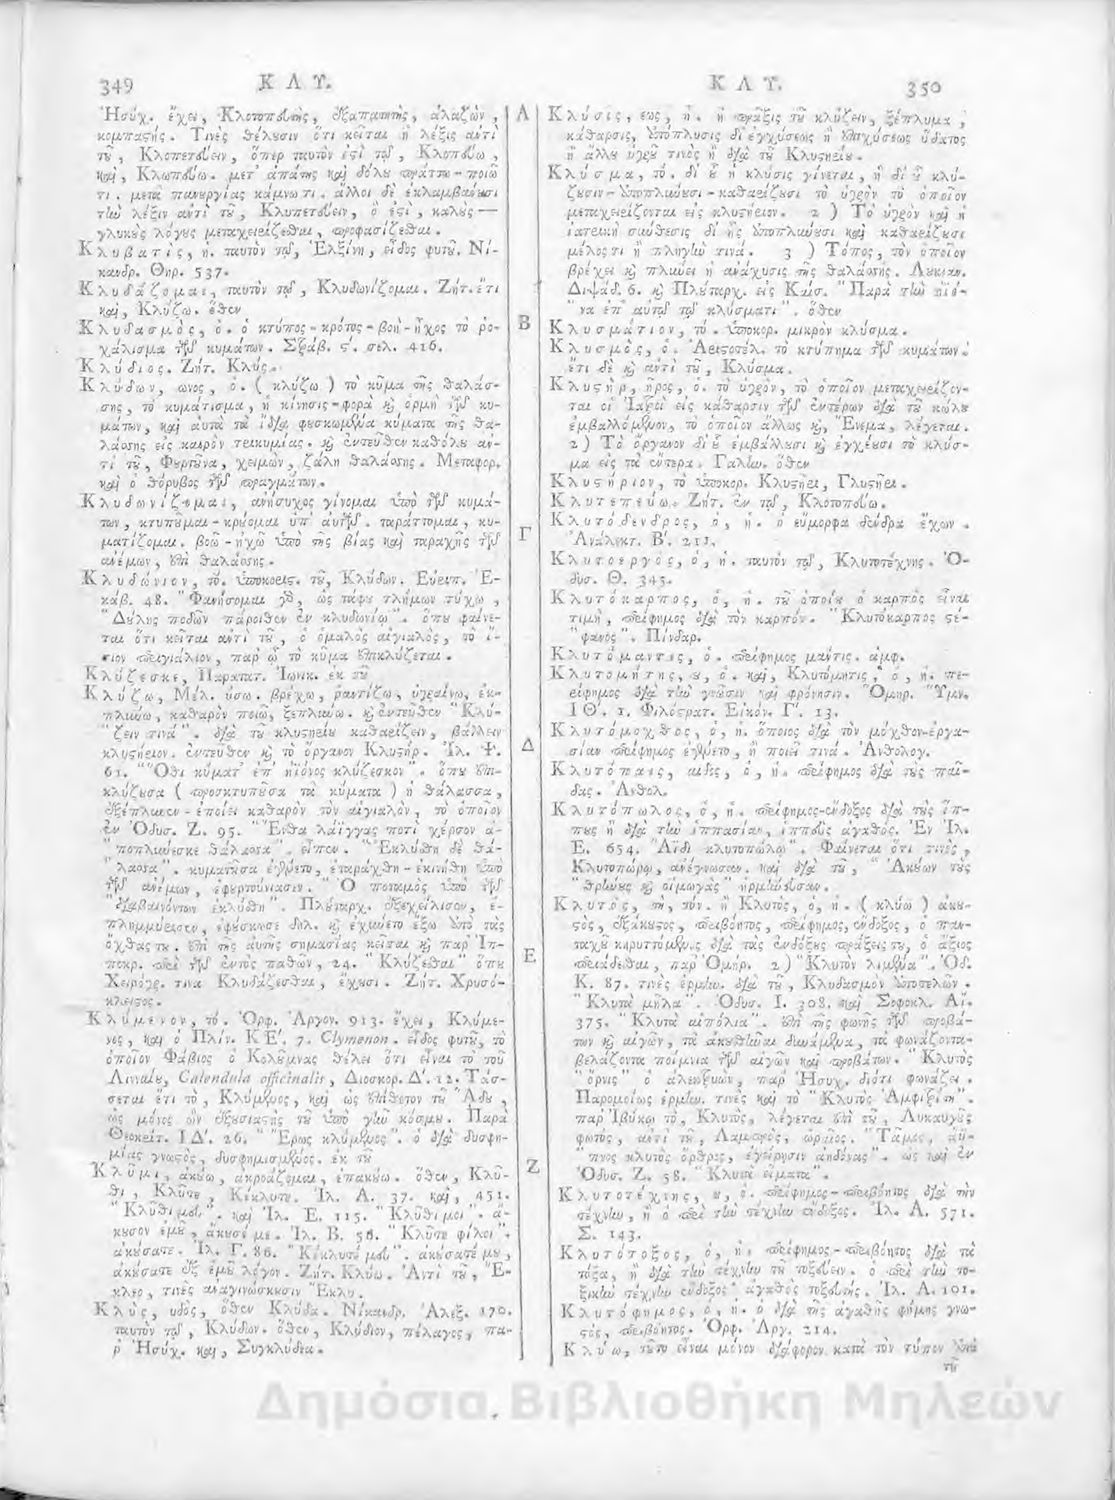 349
Κ Λ Υ.
Ἡσύχ. ἔχει, Κλοτοπευτὴς, ἐξαπατητὴς, ἀλαζὼν,
κομπαςής. Τινὲς θέλουσιν ὅτι κεῖται ἡ λέξις ἀντὶ
τοῦ, Κλοπετεύειν, ὅπερ ταυτόν ἐςι τῷ, Κλοπεύω,
καὶ, Κλωπεύω. μετ' ἀπάτης καὶ δόλου πράττω - ποιῶ
τι. μετὰ πανουργίας κάμνω τι. ἄλλοι δὲ ἐκλαμβάνουσι
τὴν λέξιν ἀντὶ τοῦ, Κλυπετεύειν, ὅ ἐςι, καλοὺς —
γλυκοὺς λόγους μεταχειρίζεσθαι, προφασίζεσθαι.
Κλύβατις, ἡ. ταυτὸν τῷ, Ἑλξίνη, εἶδος φυτοῦ. Νί-
κανδρ. Θηρ. 537.
Κλυδάζομαι, ταυτὸν τῷ, Κλυδωνίζομαι. Ζήτ. ἔτι
καὶ, Κλύζω. ὅθεν
Κλυδασμὸς, ὁ. ὁ κτύπος - κρότος - βοὴ - ἦχος τὸ ρο-
χάλισμα τῶν κυμάτων. Στράβ. ς'. σελ. 416.
Κλύδιος. Ζήτ. Κλύς.
Κλύδων, ωνος, ὁ. (κλύζω) τὸ κῦμα τῆς θαλάσ-
σης, τὸ κυμάτισμα, ἡ κίνησις - φορὰ καὶ ὁρμὴ τῶν κυ-
μάτων, καὶ αὐτὰ τὰ ἴδια φουσκωμένα κύματα τῆς θα-
λάσσης εἰς καιρὸν τρικυμίας. καὶ ἐντεῦθεν καθόλου ἀν-
τὶ τοῦ, Φουρτοῦνα, χειμὼν, ζάλη θαλάσσης. Μεταφορ.
καὶ ὁ θόρυβος τῶν πραγμάτων.
Κλυδωνίζομαι, ἀνήσυχος γίνομαι ὑπὸ τῶν κυμά-
των, κτυποῦμαι - κρούομαι ὑπ' αὐτῶν. ταράττομαι, κυ-
ματίζομαι. βοῶ - ἠχῶ ὑπὸ τῆς βίας καὶ ταραχῆς τῶν
ἀνέμων, ἐπὶ θαλάσσης.
Κλυδώνιον, τό. ὑποκορις. τοῦ, Κλύδων. Εὐριπ. Ἑ-
κάβ. 48. "Φανήσομαι γὰρ, ὡς τάφου τλήμων τύχω,
"Δούλης ποδῶν πάροιθεν ἐν κλυδωνίῳ". ὅπου φαίνε-
ται ὅτι κεῖται ἀντὶ τοῦ, ὁ ὁμαλὸς αἰγιαλὸς, τὸ ἴ-
σιον περιγιάλιον, παρ' ᾧ τὸ κῦμα ἐπικλύζεται.
Κλύζεσκε, Παρατατ. Ἰωνικ. ἐκ τοῦ
Κλύζω, Μέλ. ύσω. βρέχω, ῥαντίζω, ὑγραίνω, ἐκ-
πλύνω, καθαρὸν ποιῶ, ξεπλύνω. καὶ ἐντεῦθεν "Κλύ-
"ζειν τινά". διὰ τοῦ κλυςηρίου καθαρίζειν, βάλλειν
κλυςήριον. ἐντεῦθεν καὶ τὸ ὄργανον Κλυςήρ. Ἰλ. Ψ.
61. "Ὅθι κύματ' ἐπ' ἠϊόνος κλύζεσκον". ὅπου ἐπι-
κλύζουσα (προσκτυποῦσα τὰ κύματα) ἡ θάλασσα,
ἐξέπλυνεν - ἐποίει καθαρὸν τὸν αἰγιαλὸν, τὸ ὁποῖον
ἐν Ὀδυσ. Ζ. 95. "Ἔνθα λάϊγγας ποτὶ χέρσον ἀ-
"ποπλύνεσκε θάλασσα". εἶπεν. "Ἐκλύσθη δὲ θά-
"λασσα". κυματοῦσα ἐγένετο, ἐταράχθη - ἐκινήθη ὑπὸ
τῶν ἀνέμων, ἐφουρτούνιασεν. "Ὁ ποταμὸς ὑπὸ τῶν
"διαβαινόντων ἐκλύσθη". Πλούταρχ. ἐξεχείλισον, ἐ-
πλημμύρισεν, ἐφούσκωσε δηλ. καὶ ἐχύνετο ἔξω ἀπὸ τὰς
ὄχθας του. ἐπὶ τῆς αὐτῆς σημασίας κεῖται καὶ παρ' Ἱπ-
ποκρ. περὶ τῶν ἐντὸς παθῶν, 24. "Κλύζεσθαι" ὅπου
Χειρόγρ. τινα Κλυδάζεσθαι, ἔχουσι. Ζήτ. Χρυσό-
κλυςος.
Κλύμενον, τό. Ὀρφ. Ἀργον. 913. ἔχει, Κλύμε-
νος, καὶ ὁ Πλίν. ΚΕ'. 7. Clymenon. εἶδος φυτοῦ, τὸ
ὁποῖον Φάβιος ὁ Κολούμνας θέλει ὅτι εἶναι τὸ τοῦ
Λινναίου, Calendula officinalis, Διοσκορ. Δ'. 12. Τάσ-
σεται ἔτι τὸ, Κλύμενος, καὶ ὡς ἐπίθετον τοῦ Ἅδου,
ὡς μόνος ὢν ἐξουσιαςὴς τοῦ ὑπὸ γῆν κόσμου. Παρὰ
Θεοκρίτ. ΙΔ'. 26. "Ἔρως κλύμενος". ὁ διὰ δυσφη-
μίας γνωςὸς, δυσφημισμένος. ἐκ τοῦ
Κλῦμι, ἀκούω, ἀκροάζομαι, ἐπακούω. ὅθεν, Κλῦ-
θι, Κλῦτε, Κέκλυτε. Ἰλ. Α. 37. καὶ, 451.
"Κλῦθί μευ". καὶ Ἰλ. Ε. 115. "Κλῦθί μοι". ἄ-
κουσον ἐμοῦ, ἄκουσέ με. Ἰλ. Β. 56. "Κλῦτε φίλοι".
ἀκούσατε. Ἰλ. Γ. 86. "Κέκλυτέ μευ". ἀκούσατέ μου,
ἀκούσατε ἐξ ἐμοῦ λόγον. Ζήτ. Κλύω. Ἀντὶ τοῦ, Ἔ-
κλεο, τινὲς ἀναγινώσκουσιν Ἔκλυ.
Κλὺς, υδὸς, ὅθεν Κλύδα. Νίκανδρ. Ἀλεξ. 170.
ταυτὸν τῷ, Κλύδων. ὅθεν, Κλύδιον, πέλαγος, πα-
ρ' Ἡσύχ. καὶ, Συγκλύδια.
Α
Β
Γ
Δ
Ε
Ζ
Κ Λ Υ.
350
Κλύσις, εως, ἡ. ἡ πρᾶξις τοῦ κλύζειν, ξέπλυμα,
κάθαρσις, ἀπόπλυσις δι' ἐγχύσεως ἢ ἐπιχύσεως ὕδατος
ἢ ἄλλου ὑγροῦ τινὸς ἢ διὰ τοῦ Κλυςηρίου.
Κλύσμα, τό. δι' οὗ ἡ κλύσις γίνεται, ἢ δι' οὗ κλύ-
ζουσιν - ἀποπλύνουσι - καθαρίζουσι τὸ ὑγρὸν τὸ ὁποῖον
μεταχειρίζονται εἰς κλυςήριον. 2) Τὸ ὑγρὸν καὶ ἡ
ἰατρικὴ σύνθεσις δι' ἧς ἀποπλύνουσι καὶ καθαρίζουσι
μέλος τι ἢ πληγὴν τινά. 3) Τόπος, τὸν ὁποῖον
βρέχει καὶ πλύνει ἡ ἀνάχυσις τῆς θαλάσσης. Λουκιαν.
Διψάδ. 6. καὶ Πλούταρχ. εἰς Καίσ. "Παρὰ τὴν ἠϊό-
"να ἐπ' αὐτῷ τῷ κλύσματι". ὅθεν
Κλυσμάτιον, τό. ὑποκορ. μικρὸν κλύσμα.
Κλυσμὸς, ὁ. Ἀριςοτέλ. τὸ κτύπημα τῶν κυμάτων.
ἔτι δὲ καὶ ἀντὶ τοῦ, Κλύσμα.
Κλυςὴρ, ῆρος, ὁ. τὸ ὑγρὸν, τὸ ὁποῖον μεταχειρίζον-
ται οἱ Ἰατροὶ εἰς κάθαρσιν τῶν ἐντέρων διὰ τοῦ κώλου
ἐμβαλλόμενον, τὸ ὁποῖον ἄλλως καὶ, Ἔνεμα, λέγεται.
2) Τὸ ὄργανον δι' οὗ ἐμβάλλουσι καὶ ἐγχέουσι τὸ κλύσ-
μα εἰς τὰ ἔντερα. Γαλην. ὅθεν
Κλυςήριον, τὸ ὑποκορ. Κλυςῆρι, Γλυςῆρι.
Κλυτεπεύω. Ζήτ. ἐν τῷ, Κλοτοπεύω.
Κλυτόδενδρος, ὁ, ἡ. ὁ εὔμορφα δένδρα ἔχων.
Ἀνάλεκτ. Β'. 211.
Κλυτοεργὸς, ὁ, ἡ. ταυτὸν τῷ, Κλυτοτέχνης. Ὀ-
δυσ. Θ. 345.
Κλυτόκαρπος, ὁ, ἡ. τοῦ ὁποίου ὁ καρπὸς εἶναι
τιμὴ, περίφημος διὰ τὸν καρπόν. "Κλυτόκαρπος ςέ-
"φανος". Πίνδαρ.
Κλυτόμαντις, ὁ. περίφημος μάντις. ἀμφ.
Κλυτομήτης, ου, ὁ. καὶ, Κλυτόμητις, ὁ, ἡ. πε-
ρίφημος διὰ τὴν γνῶσιν καὶ φρόνησιν. Ὁμηρ. Ὕμν.
ΙΘ'. 1. Φιλόςρατ. Εἰκόν. Γ'. 13.
Κλυτόμοχθος, ὁ, ἡ. ὅποιος διὰ τὸν μόχθον-ἐργα-
σίαν περίφημος ἐγένετο, ἢ ποιεῖ τινά. Ἀνθολογ.
Κλυτόπαις, αιδος, ὁ, ἡ. περίφημος διὰ τοὺς παῖ-
δας. Ἀνθολ.
Κλυτόπωλος, ὁ, ἡ. περίφημος-ἔνδοξος διὰ τοὺς ἵπ-
πους ἢ διὰ τὴν ἱππασίαν, ἱππεὺς ἀγαθός. Ἐν Ἰλ.
Ε. 654. "Ἄϊδι κλυτοπώλῳ". Φαίνεται ὅτι τινὲς,
Κλυτοπώρῳ, ἀνέγνωσαν. καὶ διὰ τοῦ, "Ἀκούων τοὺς
"θρήνους καὶ οἰμωγὰς" ἡρμήνευσαν.
Κλυτὸς, τὴ, τόν. ἢ Κλυτὸς, ὁ, ἡ. (κλύω) ἀκου-
ςὸς, ἐξάκουςος, περιβόητος, περίφημος, ἔνδοξος, ὁ παν-
ταχοῦ κηρυττόμενος διὰ τὰς ἐνδόξους πράξεις του, ὁ ἄξιος
περιάδεσθαι, παρ' Ὁμήρ. 2) "Κλυτὸν λιμένα". Ὀδ.
Κ. 87. τινὲς ἑρμην. διὰ τοῦ, Κλυδασμὸν ἀποτελῶν.
"Κλυτὰ μῆλα". Ὀδυσ. Ι. 308. καὶ Σοφοκλ. Αἴ.
375. "Κλυτὰ αἰπόλια". ἐπὶ τῆς φωνῆς τῶν προβά-
των καὶ αἰγῶν, τὰ ἀκουσθῆναι δυνάμενα, τὰ φωνάζοντα-
βελάζοντα ποίμνια τῶν αἰγῶν καὶ προβάτων. "Κλυτὸς
"ὄρνις" ὁ ἀλεκτρυὼν, παρ' Ἡσυχ. διότι φωνάζει.
Παρομοίως ἑρμην. τινὲς καὶ τὸ "Κλυτὸς Ἀμφιτρίτη".
παρ' Ἰβύκῳ τὸ, Κλυτὸς, λέγεται ἐπὶ τοῦ, Λυκαυγοῦς
φωτὸς, ἀντὶ τοῦ, Λαμπρὸς, ὥριμος. "Τάμος, ἄϋ-
"πνος κλυτὸς ὄρθρος, ἐγείρησιν ἀηδόνας". ὡς καὶ ἐν
Ὀδυσ. Ζ. 58. "Κλυτὰ εἵματα".
Κλυτοτέχνης, ου, ὁ. περίφημος - περιβόητος διὰ τὴν
τέχνην, ἢ ὁ περὶ τὴν τέχνην ἔνδοξος. Ἰλ. Α. 571.
Σ. 143.
Κλυτότοξος, ὁ, ἡ. περίφημος - περιβόητος διὰ τὰ
τόξα, ἢ διὰ τὴν τέχνην τοῦ τοξεύειν. ὁ περὶ τὴν το-
ξικὴν τέχνην ἔνδοξος, ἀγαθὸς τοξευτής. Ἰλ. Δ. 101.
Κλυτόφημος, ὁ, ἡ. ὁ διὰ τῆς ἀγαθῆς φήμης γνω-
ςὸς, περιβόητος. Ὀρφ. Ἀργ. 214.
Κλύω, τοῦτο εἶναι μόνον διάφορον κατὰ τὸν τύπον ἀπὸ
τοῦ
Δημόσια Βιβλιοθήκη Μηλεών